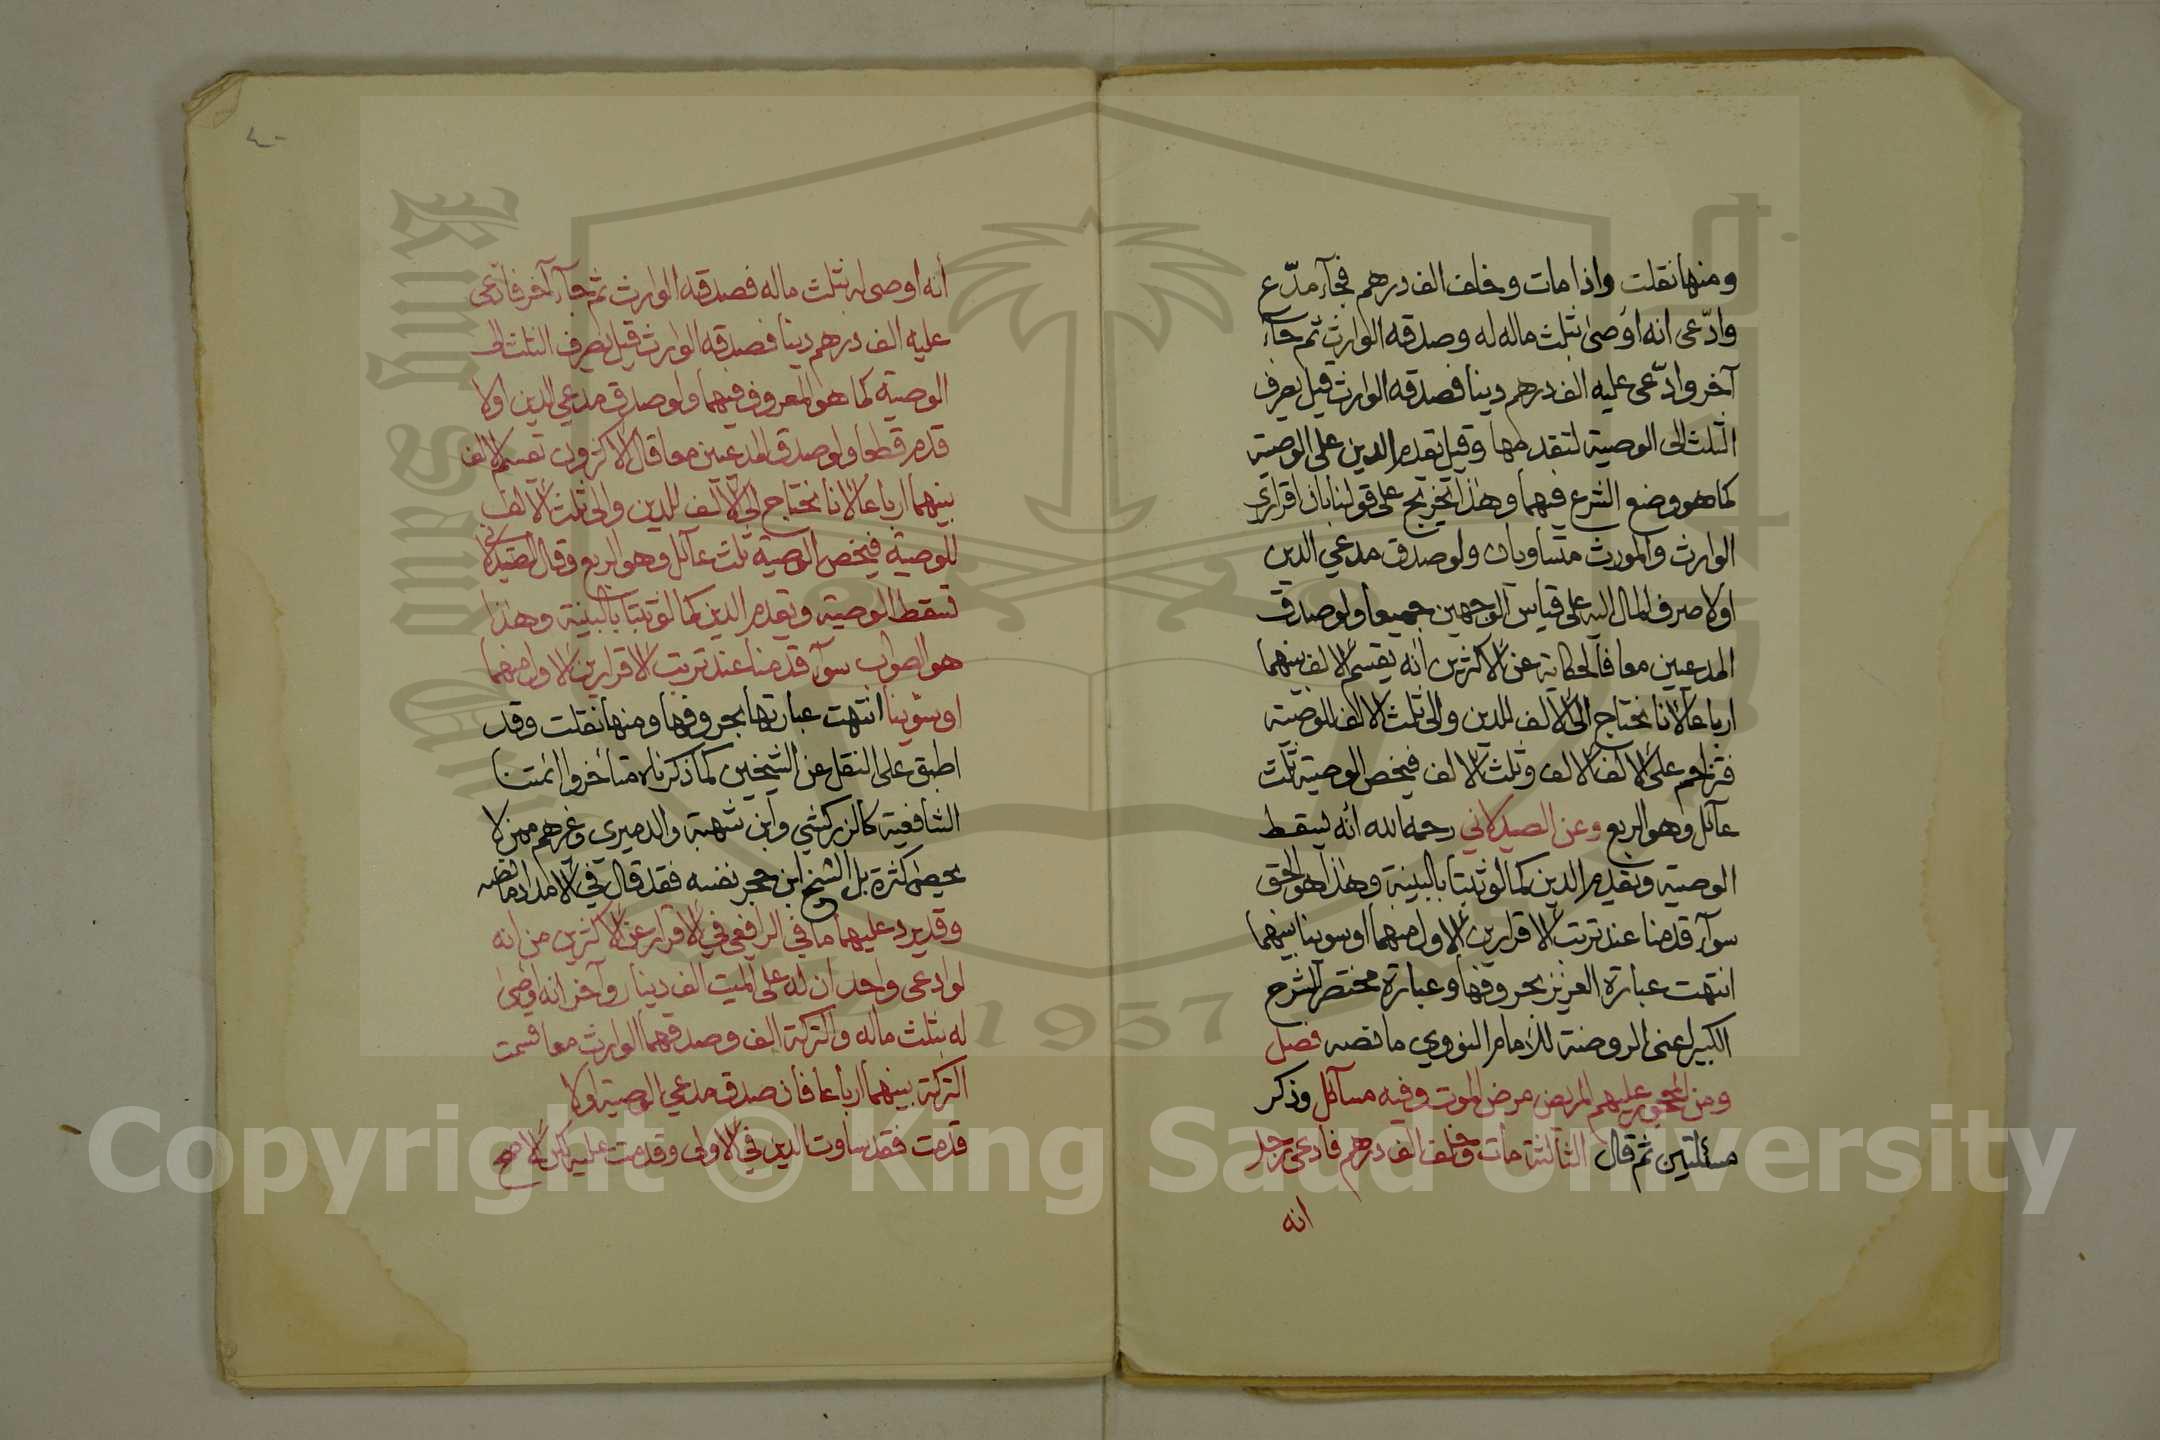 ومنها نقلت واذا مات وخلف الف درهم فجآء مدّع
وادّعى انه اوصى بثلث ماله له وصدقه الوارث ثم جآء
آخر وادّعى عليه الف درهم دينا فصدقه الوارث قيل يصرف
الثلث الى الوصية لتقدمها وقيل يقدم الدين على الوصية
كما هو وضع الشرع فيهما وهذا تخريج على قولنا بان اقراري
الوارث والمورث متساويان ولو صدق مدعي الدين
اولا صرف المال اليه على قياس الوجهين جميعا ولو صدق
المدعيين معا فالحكاية عن الاكثرين انه يقسم الالف بينهما
ارباعا لانا نحتاج الى الالف للدين والى ثلث الالف للوصية
فتزاحم على الالف الالف وثلث الالف فيخص الوصية ثلث
عآئل وهو الربع وعن الصيدلاني رحمه الله انه يسقط
الوصية ويقدم الدين كما لو ثبتا بالبينة وهذا هو الحق
سوآء قدمنا عند ترتب الاقرارين الاول منهما او سوينا بينهما
انتهت عبارة العزيز بحروفها وعبارة مختصر الشرح
الكبير اعنى الروضة للامام النووي ما نصه فصل
ومن المحجور عليهم المريض مرض الموت وفيه مسآئل وذكر
مسئلتين ثم قال الثالثة مات وخلف الف درهم فادعى رجل
انه
٤٠
أنه اوصى له بثلث ماله فصدقه الوارث ثم جآء آخر فادّعى
عليه الف درهم دينا فصدقه الوارث قيل يصرف الثلث الى
الوصية كما هو المعروف فيهما ولو صدق مدعي الدين اولا
قدم قطعا ولو صدق المدعيين معا قال الاكثرون تقسم الالف
بينهما ارباعا لانا نحتاج الى الالف للدين والى ثلث الالف
للوصية فيخص الوصية ثلث عآئل وهو الربع وقال الصيدلاني
تسقط الوصية ويقدم الدين كما لو ثبتا بالبينة وهذا
هو الصواب سوآء قدمنا عند ترتب الاقرارين الاول منهما
او سوّينا انتهت عبارتها بحروفها ومنها نقلت وقد
اطبق على النقل عن الشيخين كما ذكرناه متاخروا ائمتنا
الشافعية كالزركشي وابن شهبة والدميرى وغرهم ممن لا
يحصى كثرة بل الشيخ ابن حجر نفسه فقد قال في الامداد ما نصه
وقد يرد عليهما ما في الرافعي في الاقرار عن الاكثرين من انه
لو ادعى واحد ان له على الميت الف دينار وآخر انه اوصى
له بثلث ماله والتركة الف وصدقهما الوارث معا قسمت
التركة بينهما ارباعا فان صدق مدعي الوصية اولا
قدمت فقد ساوت الدين في الاولى وقدمت عليه لكن الاصح
King Saud University
1957
Copyright © King Saud University